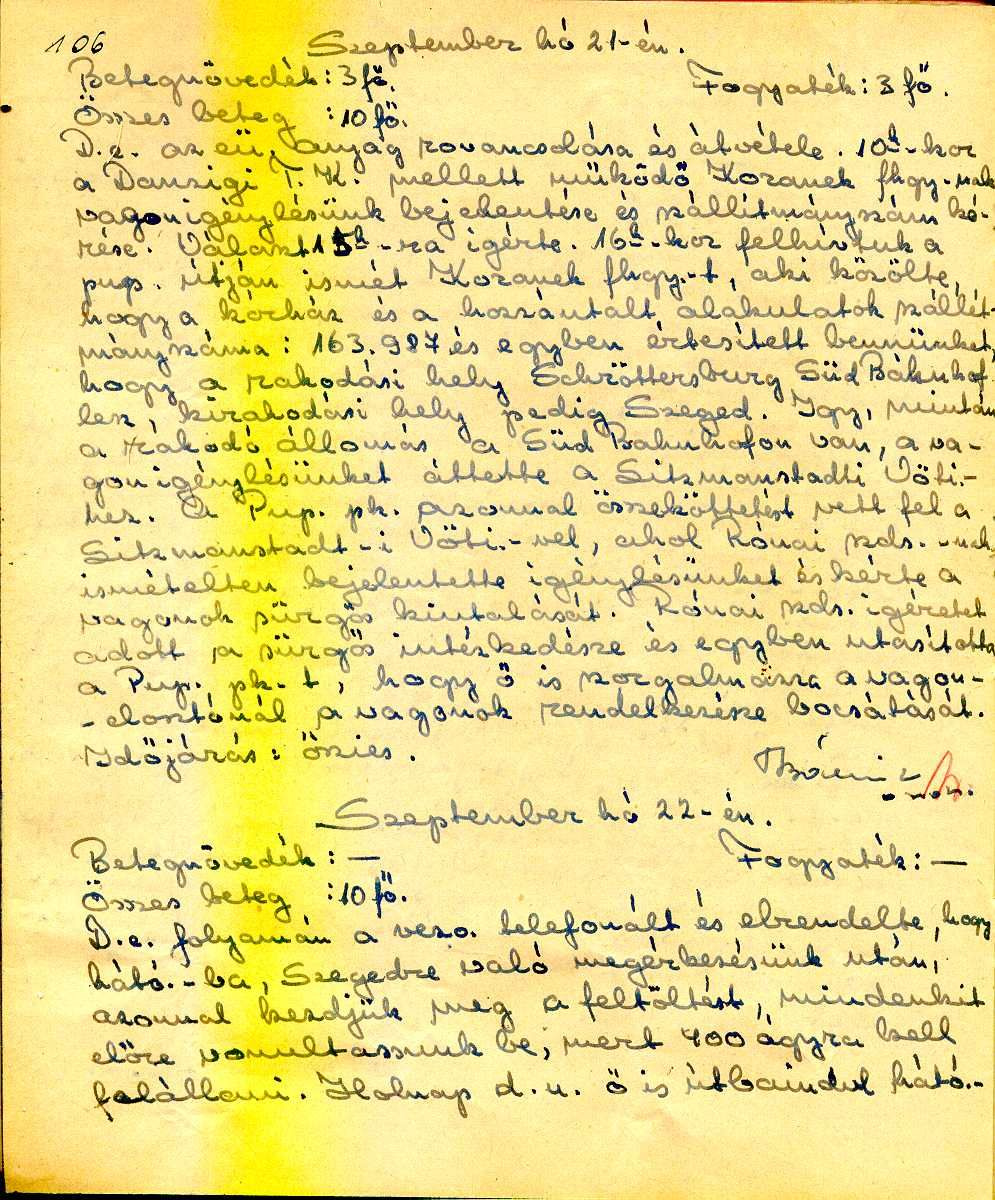 106
Szeptember hó 21-én.
Betegnövedék: 3 fő. Fogyaték: 3 fő.
Összes beteg : 10 fő.
D.e. az eü. anyag rovancsolása és átvétele. 10h-kor
a Danzigi T.K. mellett működő Kozanek fhgy-nak
vagonigénylésünk bejelentése és szállítmányszám ké-
rése. Választ 15h-ra igérte. 16h-kor felhívtuk a
pup. útján ismét Kozanek fhgy.-t, aki közölte,
hogy a kórház és a hozzáutalt alakulatok szállít-
mányszáma: 163.987 és egyben értesített bennünket,
hogy a rakodási hely Schröttersburg Süd Báhnhof
lesz, kirakodási hely pedig Szeged. Igy, miután
a rakodó állomás a Süd Bahnhofon van, a va-
gonigénylésünket áttette a Litzmanstadti Vöti.-
hez. A Pup. pk. azonnal összeköttetést vett fel a
Litzmanstadt-i Vöti.-vel, ahol Rónai szds.-nak
ismételten bejelentette igénylésünket és kérte a
vagonok sürgős kiutalását. Rónai szds. igéretet
adott a sürgős intézkedésre és egyben utasította
a Pup. pk-t, hogy ő is szorgalmazza a vagon-
-elosztónál a vagonok rendelkezésre bocsátását.
Időjárás: őszies.
Szeptember hó 22-én.
Betegnövedék: — Fogyaték: —
Összes beteg : 10 fő.
D.e. folyamán a vezo. telefonált és elrendelte, hogy
ható.-ba, Szegedre való megérkezésünk után,
azonnal kezdjük meg a feltöltést, mindenkit
előre vonultassunk be, mert 400 ágyra kell
felállani. Holnap d.u. ő is útbaindul ható.-